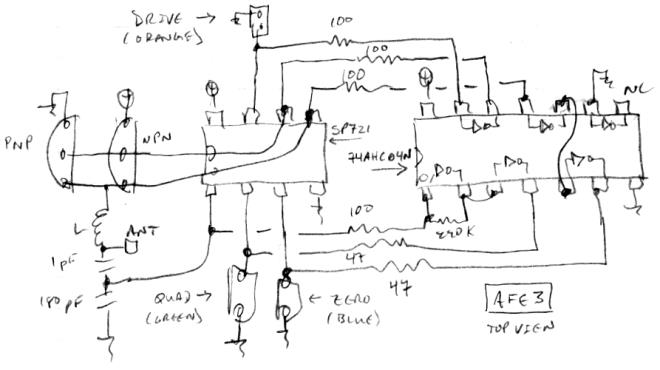 DRIVE →
(ORANGE)
100
100
100
NC
PNP
NPN
SP721
74AHC04N
L
ANT
100
220K
1pF
47
180pF
47
QUAD →
(GREEN)
← ZERO
(BLUE)
AFE3
TOP VIEW